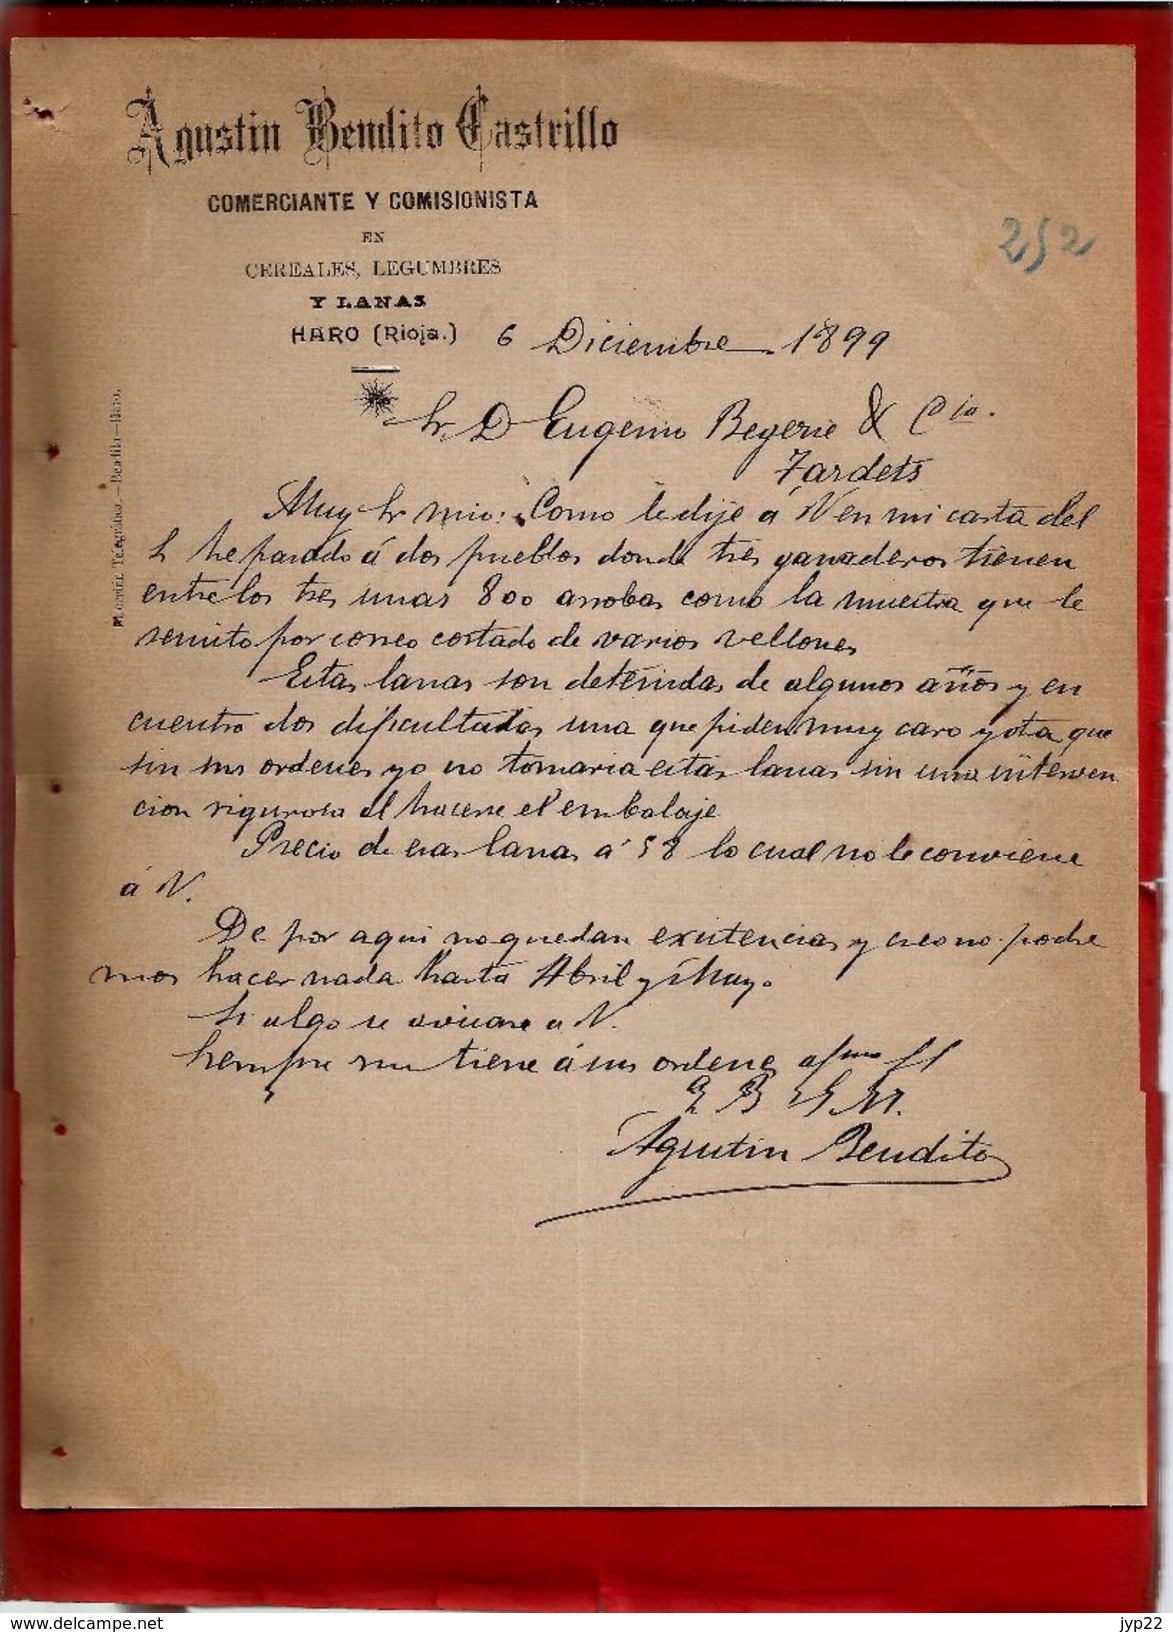 Agustin Bendito Castrillo
COMERCIANTE Y COMISIONISTA
EN
CEREALES, LEGUMBRES
Y LANAS
HARO (Rioja.) 6 Diciembre 1899
252
Sr. D Eugenio Begerie & Cia.
Tardets
Muy Sr mio: Como le dije á V en mi carta del
5 he pasado á dos pueblos donde tres ganaderos tienen
entre los tres unas 800 arrobas como la muestra que le
remito por correo cortado de varios vellones
Estas lanas son detenidas de algunos años y en
cuentro dos dificultades una que piden muy caro y otra que
sin sus ordenes yo no tomaria estas lanas sin una interven
cion rigurosa al hacerse el embalaje
Precio de esas lanas á 58 lo cual no le conviene
á V.
De por aqui no quedan existencias y creo no podre
mos hacer nada hasta Abril y Mayo
Si algo se avisare a V.
Siempre me tiene á sus ordenes afmo SS
Q B S M.
Agustin Bendito
Dirección Telegráfica.—Bendito—Haro.
www.delcampe.net
jyp22